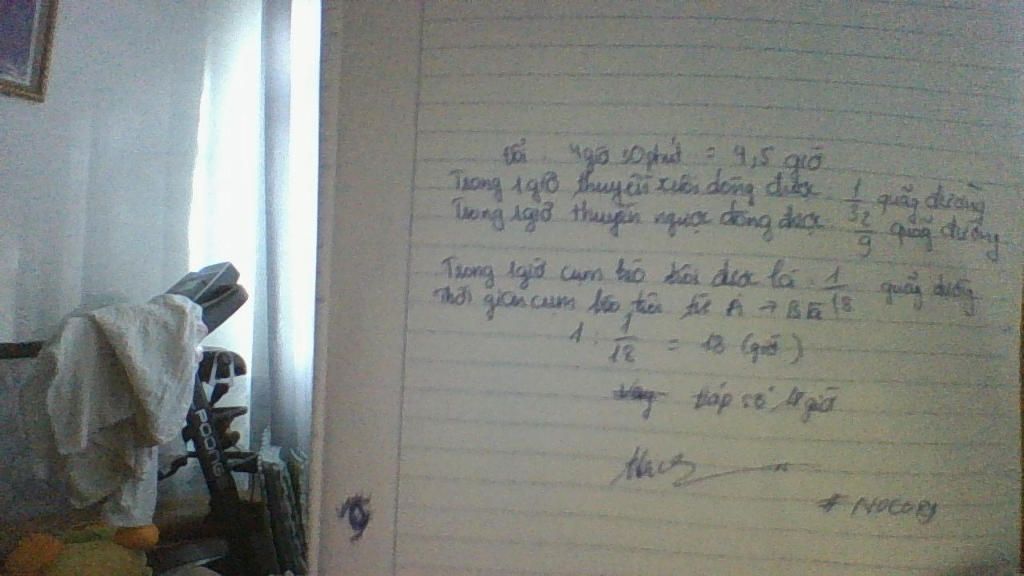 Đổi 4 giờ 30 phút = 4,5 giờ
Trong 1 giờ thuyền xuôi dòng được 1/32 quãng đường
Trong 1 giờ thuyền ngược dòng được 2/9 quãng đường
Trong 1 giờ cụm bèo trôi được là 1/18 quãng đường
Thời gian cụm bèo trôi từ A → B là
1 : 1/18 = 18 (giờ)
Đáp số 18 giờ
# NOCOPY
POONG